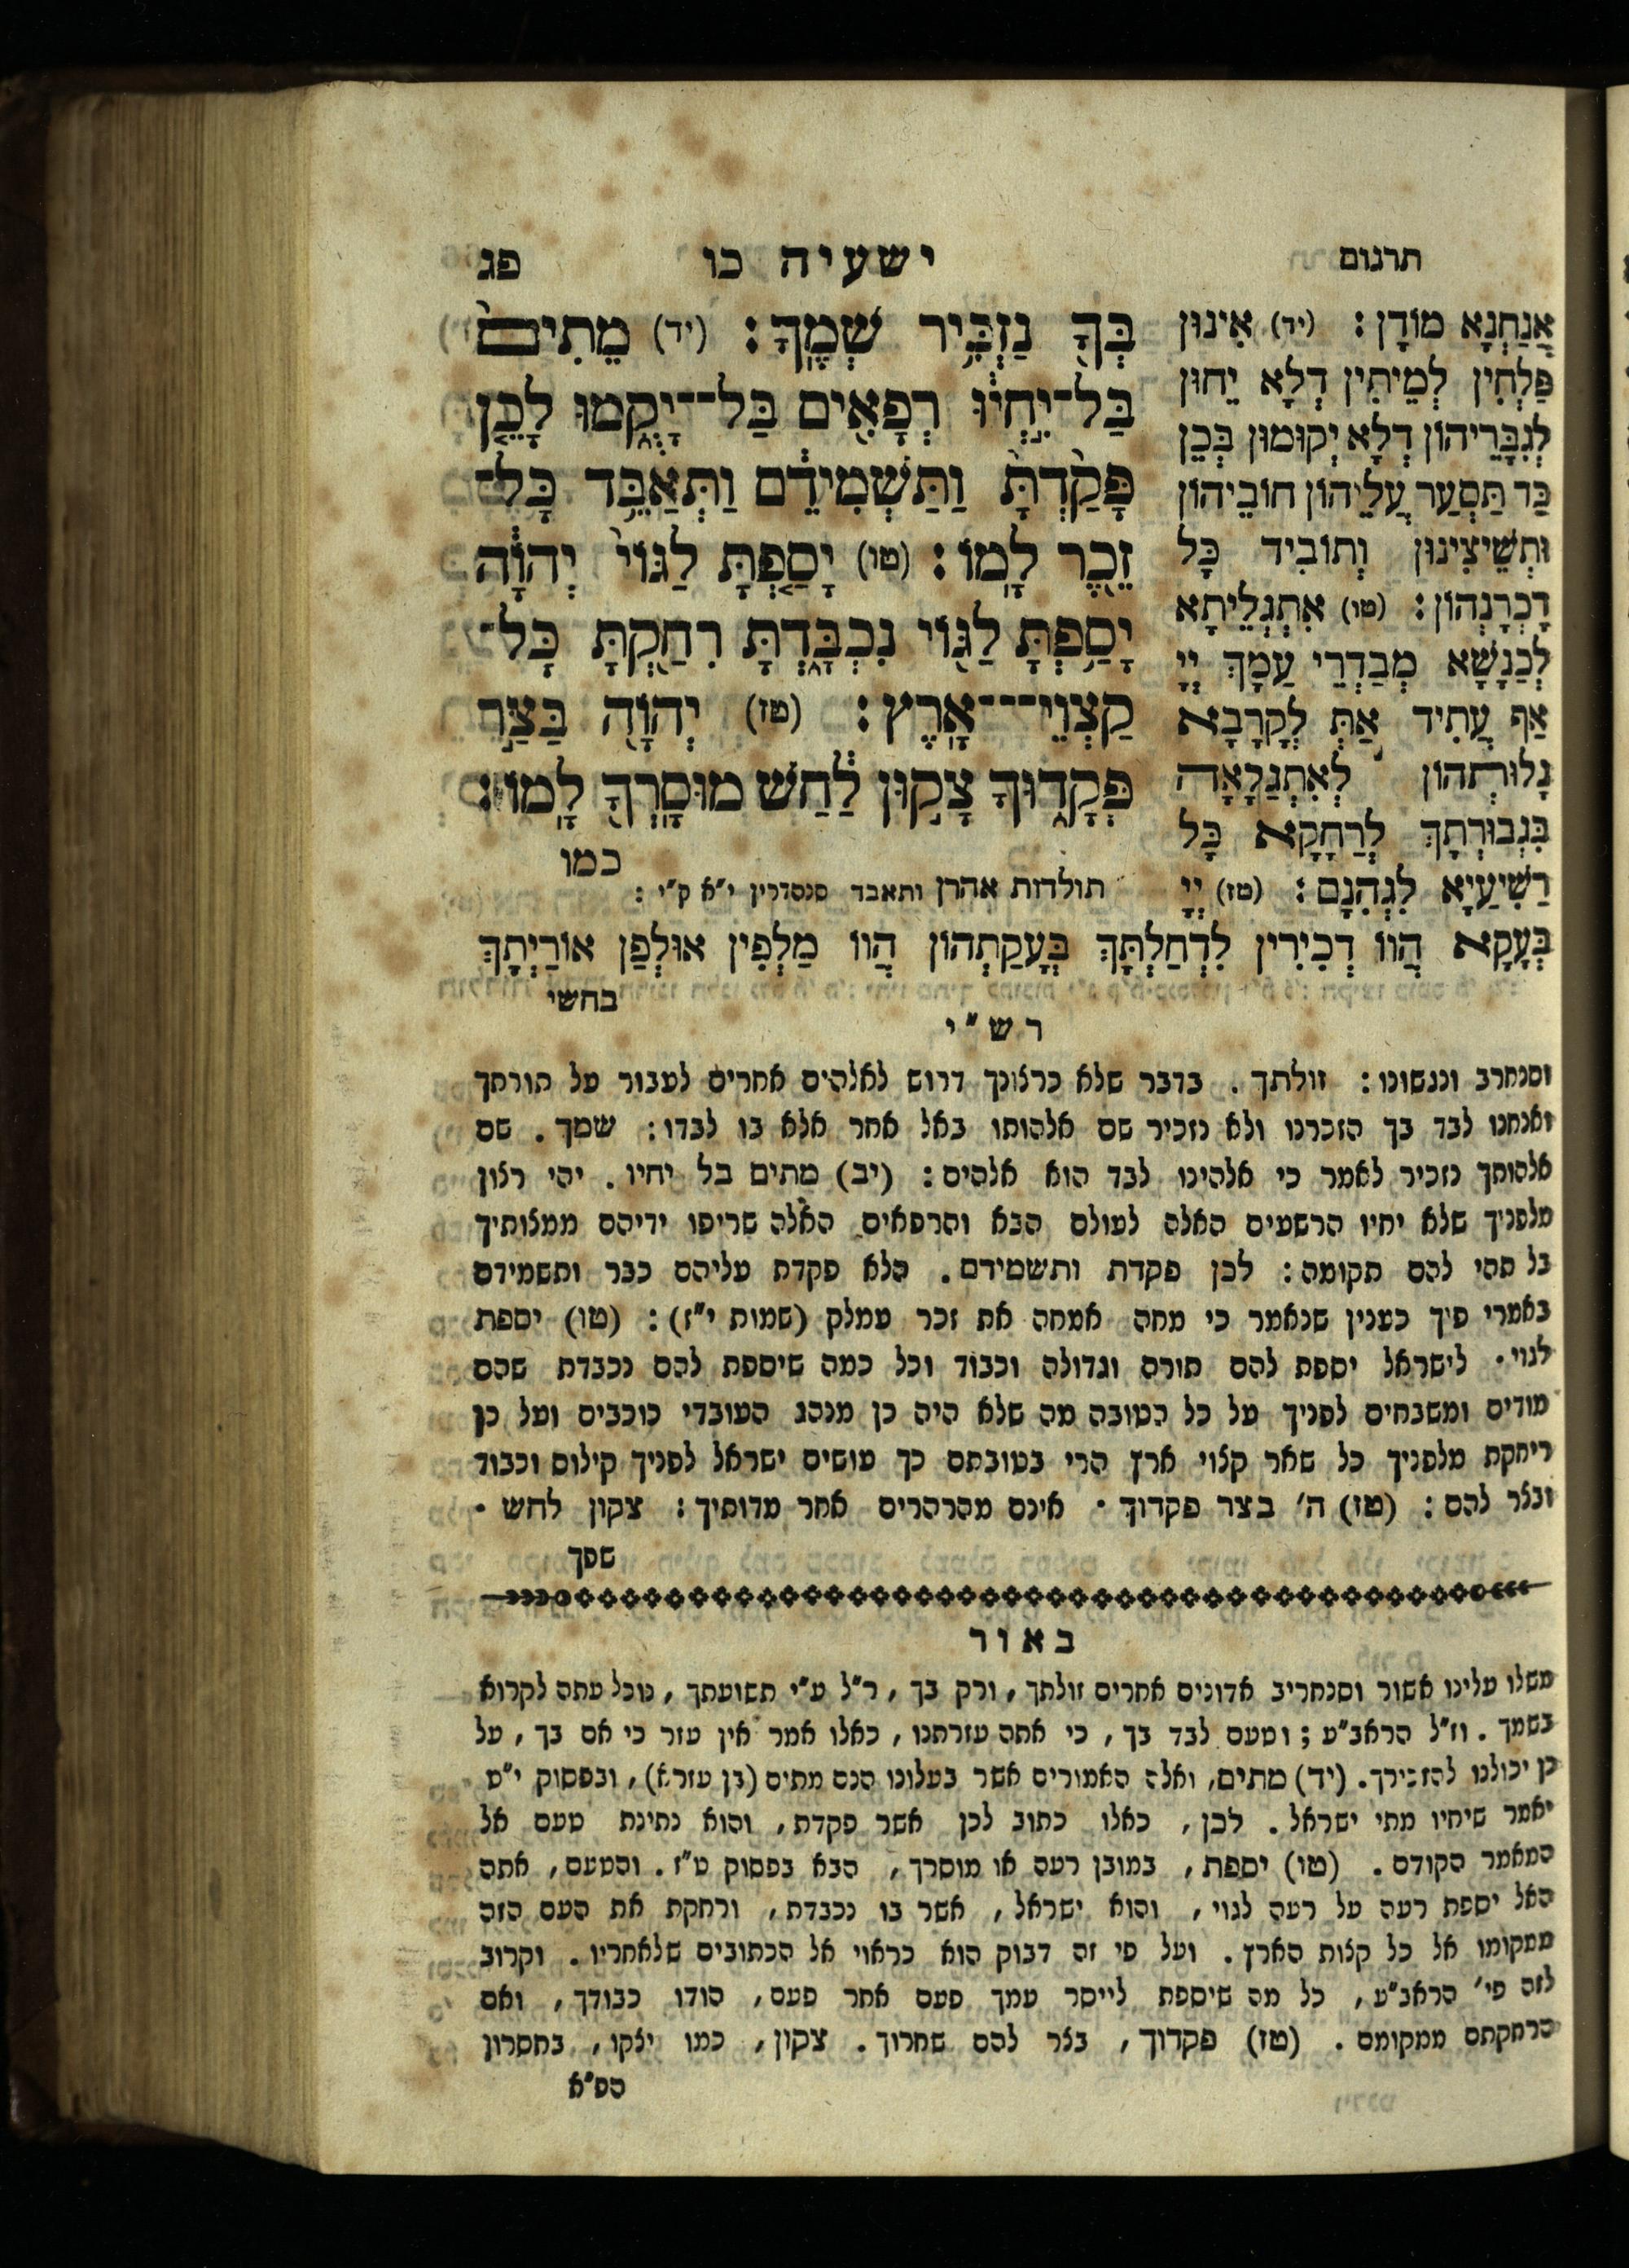 תרגום
ישעיה כו
פג
בְּךָ נַזְכִּיר שְׁמֶךָ: (יד) מֵתִים
בַּל־יִחְיוּ רְפָאִים בַּל־יָקֻמוּ לָכֵן
פָּקַדְתָּ וַתַּשְׁמִידֵם וַתְּאַבֵּד כָּל־
זֵכֶר לָמוֹ: (טו) יָסַפְתָּ לַגּוֹי יְהוָֹה
יָסַפְתָּ לַגּוֹי נִכְבָּדְתָּ רִחַקְתָּ כָּל־
קַצְוֵי־אָרֶץ: (טז) יְהוָֹה בַּצַּר
פְּקָדוּךָ צָקוּן לַחַשׁ מוּסָרְךָ לָמוֹ:
כמו
תולדות אהרן ותאבד סנהדרין י״א ק״י:
אֲנַחְנָא מוֹדָן: (יד) אִינוּן
פַּלְחִין לְמֵיתִין דְלָא יֵחוּן
לְגִבָּרֵיהוֹן דְלָא יְקוּמוּן בְּכֵן
כַּד תַּסְעַר עֲלֵיהוֹן חוֹבֵיהוֹן
וּתְשֵׁיצִינוּן וְתוֹבִיד כָּל
דָכְרָנְהוֹן: (טו) אִתְגְלֵיתָא
לְכַנָשָׁא מְבַדְרֵי עַמָךְ יְיָ
אַף עֲתִיד אַתְּ לְקָרָבָא
גָלוּתְהוֹן לְאִתְגַלָאָה
בִּגְבוּרְתָךְ לְרַחָקָא כָּל
רַשִׁיעַיָא לְגְהִנָם: (טז) יְיָ
בְּעָקָא הֲווֹ דְכִירִין לִדְחַלְתָּךְ בְּעָקַתְהוֹן הֲווֹ מַלְפִין אוּלְפַן אוֹרַיְתָךְ
בחשי
רש״י
וסנחרב ונגשונו: זולתך. בדבר שלא כרצונך דרוש לאלהים אחרים לעבור על תורתך
ואנחנו לבד בך הזכרנו ולא נזכיר שם אלהותו באל אחר אלא בו לבדו: שמך. שם
אלהותך נזכיר לאמר כי אלהינו לבד הוא אלהים: (יב) מתים בל יחיו. יהי רצון
מלפניך שלא יחיו הרשעים האלה לעולם הבא והרפאים האלה שריפו ידיהם ממצותיך
בל תהי להם תקומה: לכן פקדת ותשמידם. הלא פקדת עליהם כבר ותשמידם
באמרי פיך כענין שנאמר כי מחה אמחה את זכר עמלק (שמות י״ז): (טו) יספת
לגוי. לישראל יספת להם תורה וגדולה וכבוד וכל כמה שיספת להם נכבדת שהם
מודים ומשבחים לפניך על כל הטובה מה שלא היה כן מנהג העובדי כוכבים ועל כן
ריחקת מלפניך כל שאר קצוי ארץ הרי בטובתם כך עושים ישראל לפניך קילוס וכבוד
ובצר להם: (טז) ה׳ בצר פקדוך. אינם מהרהרים אחר מדותיך: צקון לחש.
שפך
באור
משלו עלינו אשור וסנחריב אדונים אחרים זולתך, ורק בך, ר״ל ע״י תשועתך, נוכל עתה לקרוא
בשמך. וז״ל הראב״ע; וטעם לבד בך, כי אתה עזרתנו, כאלו אמר אין עזר כי אם בך, על
כן יכולנו להזכירך. (יד) מתים, ואלה האמורים אשר בעלונו הנם מתים (בן עזרא), ובפסוק י״ט
יאמר שיחיו מתי ישראל. לכן, כאלו כתוב לכן אשר פקדת, והוא נתינת טעם אל
המאמר הקודם. (טו) יספת, במובן רעה או מוסרך, הבא בפסוק ט״ז. והטעם, אתה
האל יספת רעה על רעה לגוי, והוא ישראל, אשר בו נכבדת, ורחקת את העם הזה
ממקומו אל כל קצות הארץ. ועל פי זה דבוק הוא כראוי אל הכתובים שלאחריו. וקרוב
לזה פי׳ הראב״ע, כל מה שיספת לייסר עמך פעם אחר פעם, הודו כבודך, ואם
הרחקתם ממקומם. (טז) פקדוך, בצר להם שחרוך. צקון, כמו יצקו, בחסרון
הפ״א